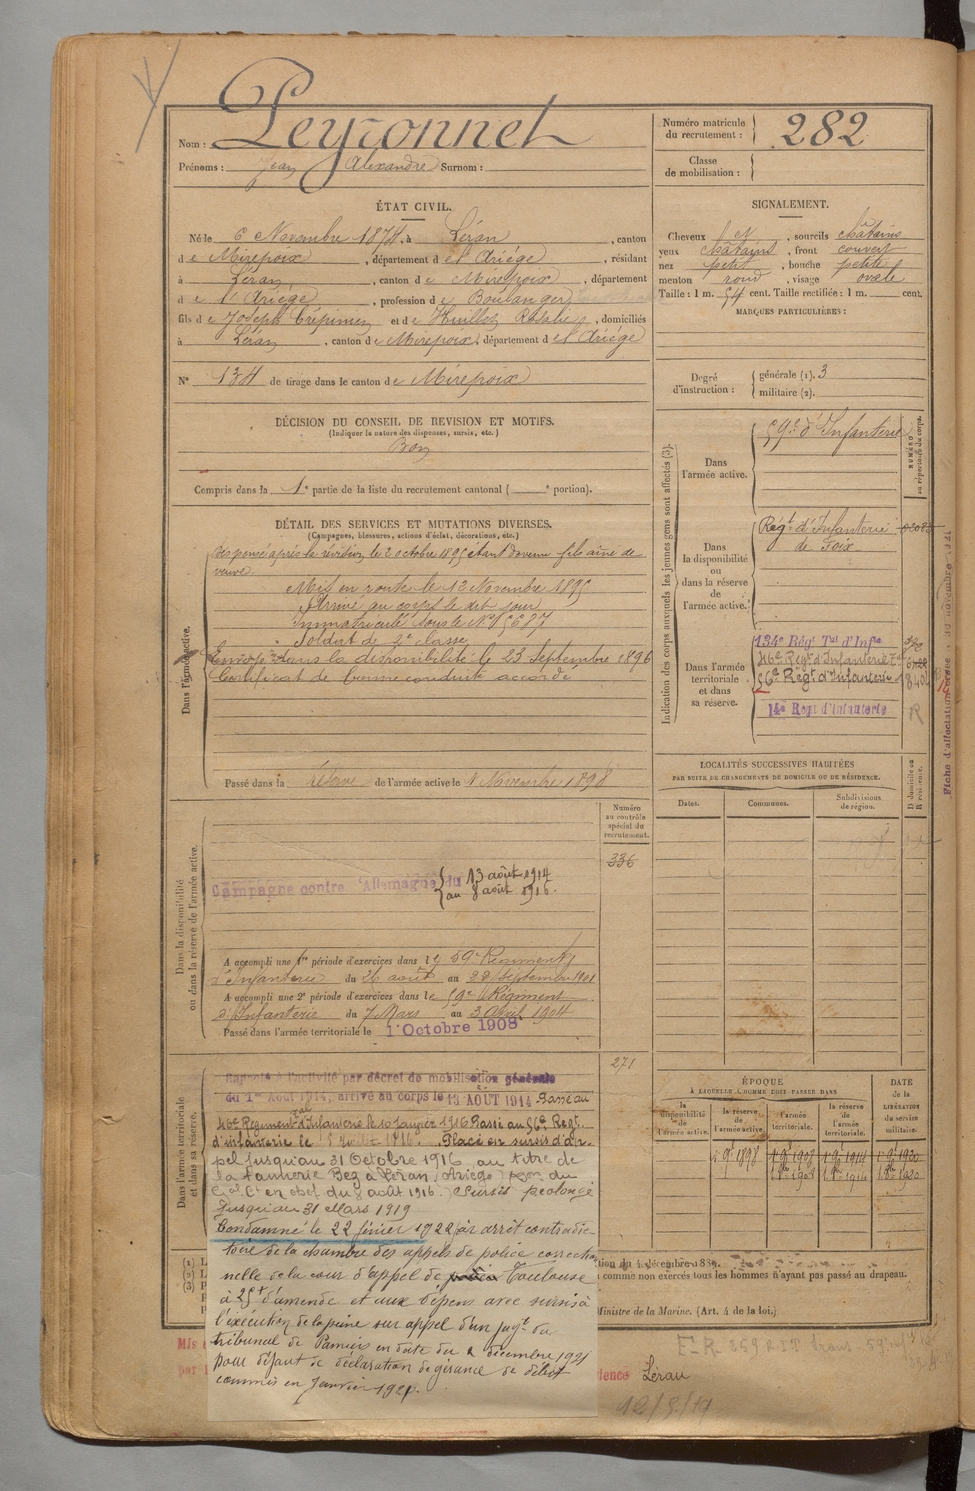 Nom : Peyronnet
Prénoms : Jean Alexandre Surnom :
Numéro matricule du recrutement : 282
Classe de mobilisation :
ÉTAT CIVIL.
Né le 6 Novembre 1874, à Léran, canton
de Mirepoix, département de l'Ariége, résidant
à Léran, canton de Mirepoix, département
de l'Ariége, profession de Boulanger
fils de Joseph Crépin et de Rosalie, domiciliés
à Léran, canton de Mirepoix, département de l'Ariége
N° 134 de tirage dans le canton de Mirepoix
SIGNALEMENT.
Cheveux , sourcils châtains
yeux châtains, front couvert
nez petit, bouche petite
menton rond, visage ovale
Taille : 1 m. 54 cent. Taille rectifiée : 1 m. cent.
MARQUES PARTICULIÈRES :
Degré d'instruction : générale (1). 3
militaire (2).
DÉCISION DU CONSEIL DE REVISION ET MOTIFS.
(Indiquer la nature des dispenses, sursis, etc.)
Bon
Compris dans la 1e partie de la liste du recrutement cantonal ( e portion).
DÉTAIL DES SERVICES ET MUTATIONS DIVERSES.
(Campagnes, blessures, actions d'éclat, décorations, etc.)
Dans l'armée active.
Dispensé après la révision le 2 octobre 1895 étant devenu fils aîné de
veuve.
Mis en route le 12 Novembre 1895
Arrivé au corps le dit jour
Immatriculé sous le N°
Soldat de 2e classe
Envoyé dans la disponibilité le 23 Septembre 1896
Certificat de bonne conduite accordé
Passé dans la réserve de l'armée active le 1 Novembre 1898
Indication des corps auxquels les jeunes gens sont affectés (3).
Dans l'armée active.
59e d'Infanterie
NUMÉRO au répertoire du corps.
Dans la disponibilité ou dans la réserve de l'armée active.
Régt d'Infanterie
de Foix
Dans l'armée territoriale et dans sa réserve.
134e Régt Tal d'Infie
46e Régt d'Infanterie
56e Régt d'Infanterie
14e Regt d'Infanterie
R
LOCALITÉS SUCCESSIVES HABITÉES
PAR SUITE DE CHANGEMENTS DE DOMICILE OU DE RÉSIDENCE.
Dates. Communes. Subdivisions de région.
D domicile ou R résidence.
Numéro au contrôle spécial du recrutement.
336
Dans la disponibilité ou dans la réserve de l'armée active.
Campagne contre l'Allemagne du 13 août 1914
au 8 août 1916.
A accompli une 1re période d'exercices dans le 59e Régiment
d'Infanterie du 26 août au 22 Septembre 1901
A accompli une 2e période d'exercices dans le 59e Régiment
d'Infanterie du 7 Mars au 3 Avril 1904
Passé dans l'armée territoriale le 1 Octobre 1908
271
Dans l'armée territoriale et dans sa réserve.
Rappelé à l'activité par décret de mobilisation générale
du 1er Août 1914, arrivé au corps le 13 AOUT 1914 Passé au
46e Régiment d'Infanterie le 10 Janvier 1916 Passé au 56e Régt
d'infanterie le 1916. Placé en sursis d'ap-
pel jusqu'au 31 Octobre 1916 au titre de
la tannerie Bez à Léran, Ariège du
Gal Ct en chef du 8 août 1916. Sursis prolongé
jusqu'au 31 Mars 1919
Condamné le 22 février 1922 par arrêt contradic-
toire de la chambre des appels de police correction-
nelle de la cour d'appel de Toulouse
à 25 f d'amende et aux dépens avec sursis à
l'exécution de la peine sur appel d'un jugt du
tribunal de Pamiers en date du 2 décembre 1921
pour défaut de déclaration de gérance de débit
commis en Janvier 1921.
ÉPOQUE
À LAQUELLE L'HOMME DOIT PASSER DANS
la disponibilité de l'armée active. la réserve de l'armée active. l'armée territoriale. la réserve de l'armée territoriale.
DATE de la LIBÉRATION du service militaire.
comme non exercés tous les hommes n'ayant pas passé au drapeau.
Ministre de la Marine. (Art. 4 de la loi.)
Léran